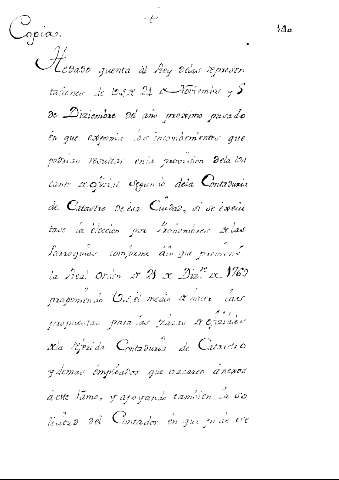 Copias.
He dado quenta al Rey de las represen
taciones de V.S. de 21 de Noviembre y 5
de Diziembre del año proximo pasado
en que exponia los incombenientes que
podrian resultar en la provision de la va
cante de oficial segundo de la Contaduria
de Catastro de esa Ciudad, si se execu
tase la eleccion por de las
Parroquias conforme a lo que previene
la Real Orden de 21 de Diz.re de 1760
proponiendo V.S. el medio de hacer las
propuestas para las plazas de oficiales
de la referida Contaduria de Catastro
y demas empleados que vacaren anexos
a este ramo, y apoyando tambien la so
licitud del Contador en que pide se